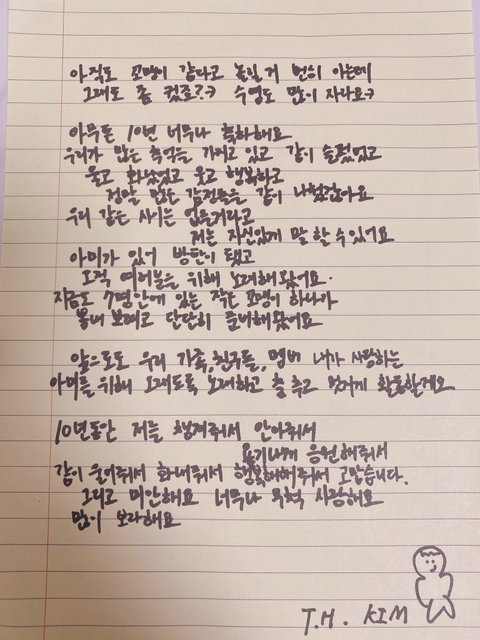 아직도 꼬맹이 같다고 놀릴 거 뻔히 아는데
그래도 좀 컸죠?ㅋ 수염도 많이 자라요ㅋ
아무튼 10년 너무나 축하해요
우리가 많은 추억을 가지고 있고 같이 슬펐었고
울고 화났었고 웃고 행복하고
정말 많은 감정들을 같이 나눴잖아요
우리 같은 사이는 없을거라고
저는 자신있게 말 할 수 있어요
아미가 있어 방탄이 됐고
오직 여러분을 위해 노래해 왔어요.
지금도 7명안에 있는 작은 꼬맹이 하나가
뽐내 보려고 단단히 준비해 왔어요
앞으로도 우리 가족,친구들,멤버 내가 사랑하는
아미를 위해 오래도록 노래하고 춤 추고 멋지게 활동할게요
10년동안 저를 챙겨줘서 안아줘서
용기나게 응원해줘서
같이 울어줘서 화내줘서 행복해해줘서 고맙습니다.
그리고 미안해요 너무나 무척 사랑해요
많이 보라해요
T.H. KIM